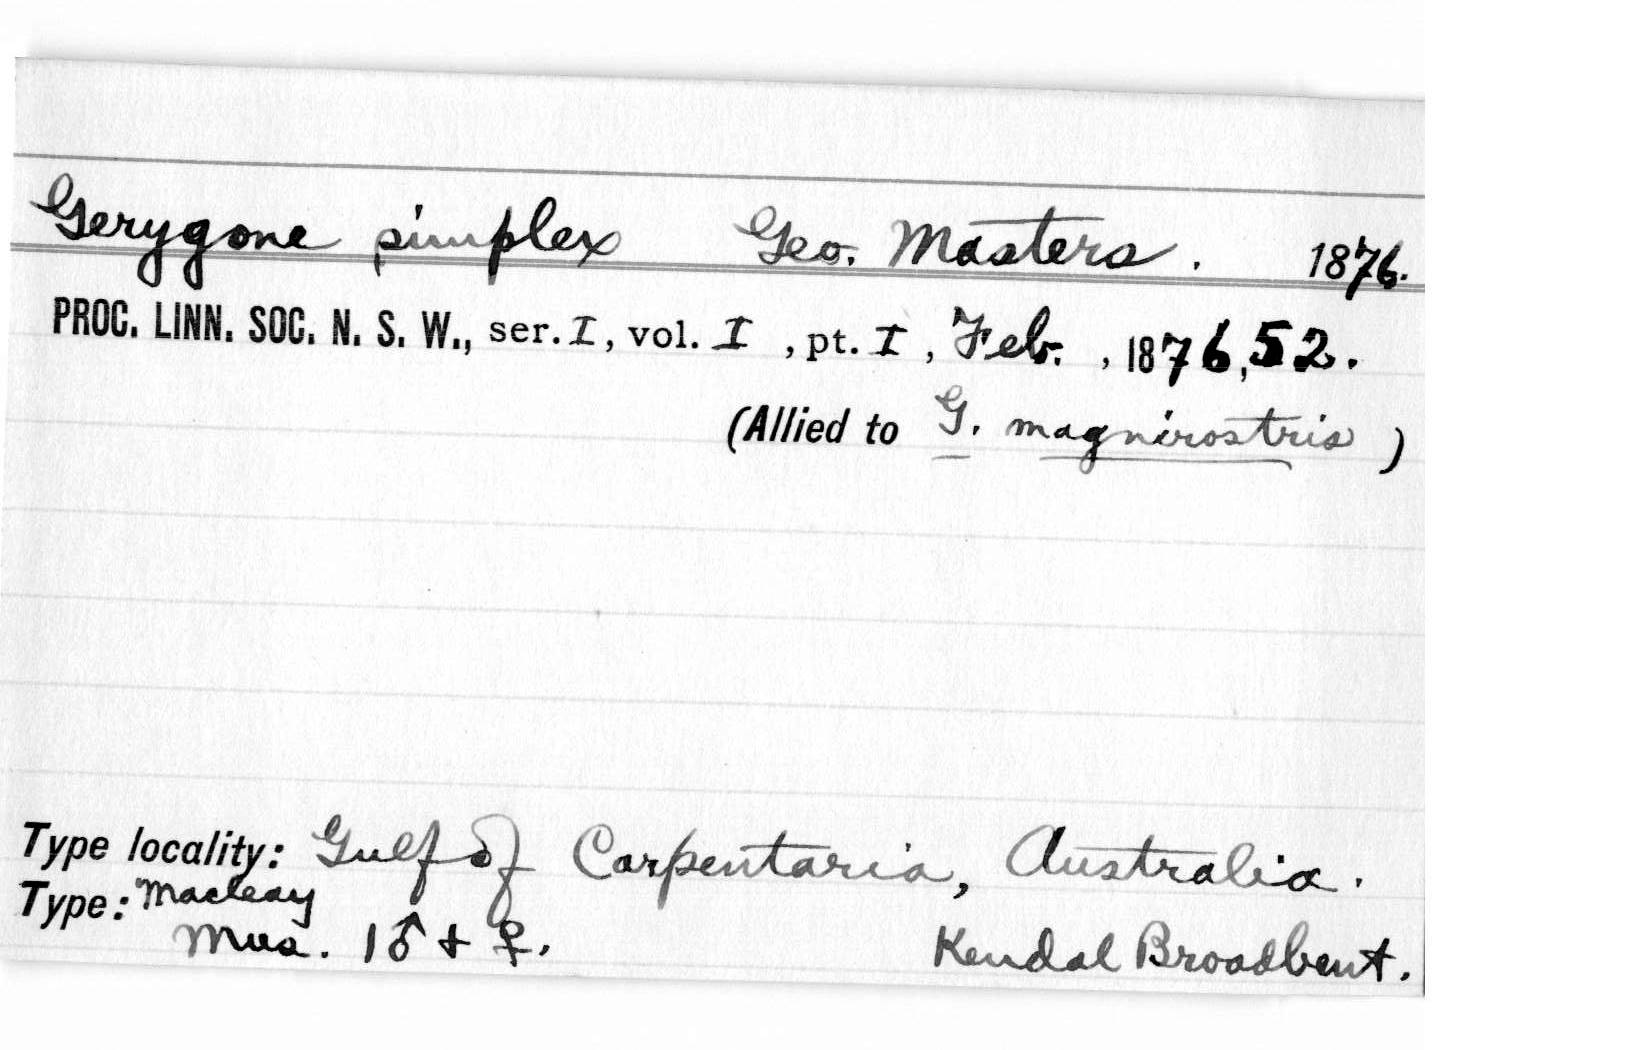 Gerygone simplex Geo. Masters. 1876.
PROC. LINN. SOC. N. S. W., ser. I, vol. I, pt. I, Feb., 1876, 52.
(Allied to G. magnirostris)
Type locality: Gulf of Carpentaria, Australia.
Type: Macleay
Mus. 1♂ + ♀. Kendal Broadbent.